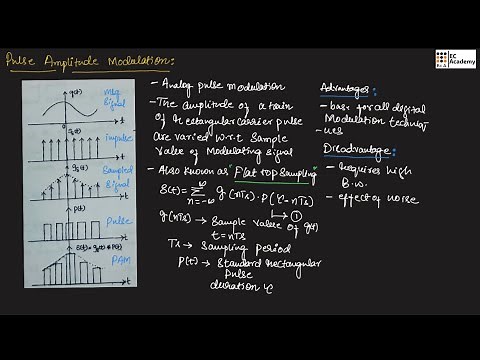 Pulse Amplitude Modulation:
EC
Academy
g(t)
Msg
Signal
t
Impulse
t
Sampled
Signal
t
P(t)
Pulse
t
PAM
t
- Analog pulse modulation
- The amplitude of a train
of Rectangular carrier pulse
are varied w.r.t Sample
value of Modulating signal
- Also known as "Flat top Sampling"
S(t)= ∞Σn=-∞ g(nTs) . P(t-nTs)
→ ①
g(nTs) → Sample value of g(t)
t = nTs
Ts → Sampling period
P(t) → Standard Rectangular
pulse
duration
Advantages:
- base for all digital
Modulation techniq-
ues
Disadvantage:
- Requires high
B.W.
- effect of noise